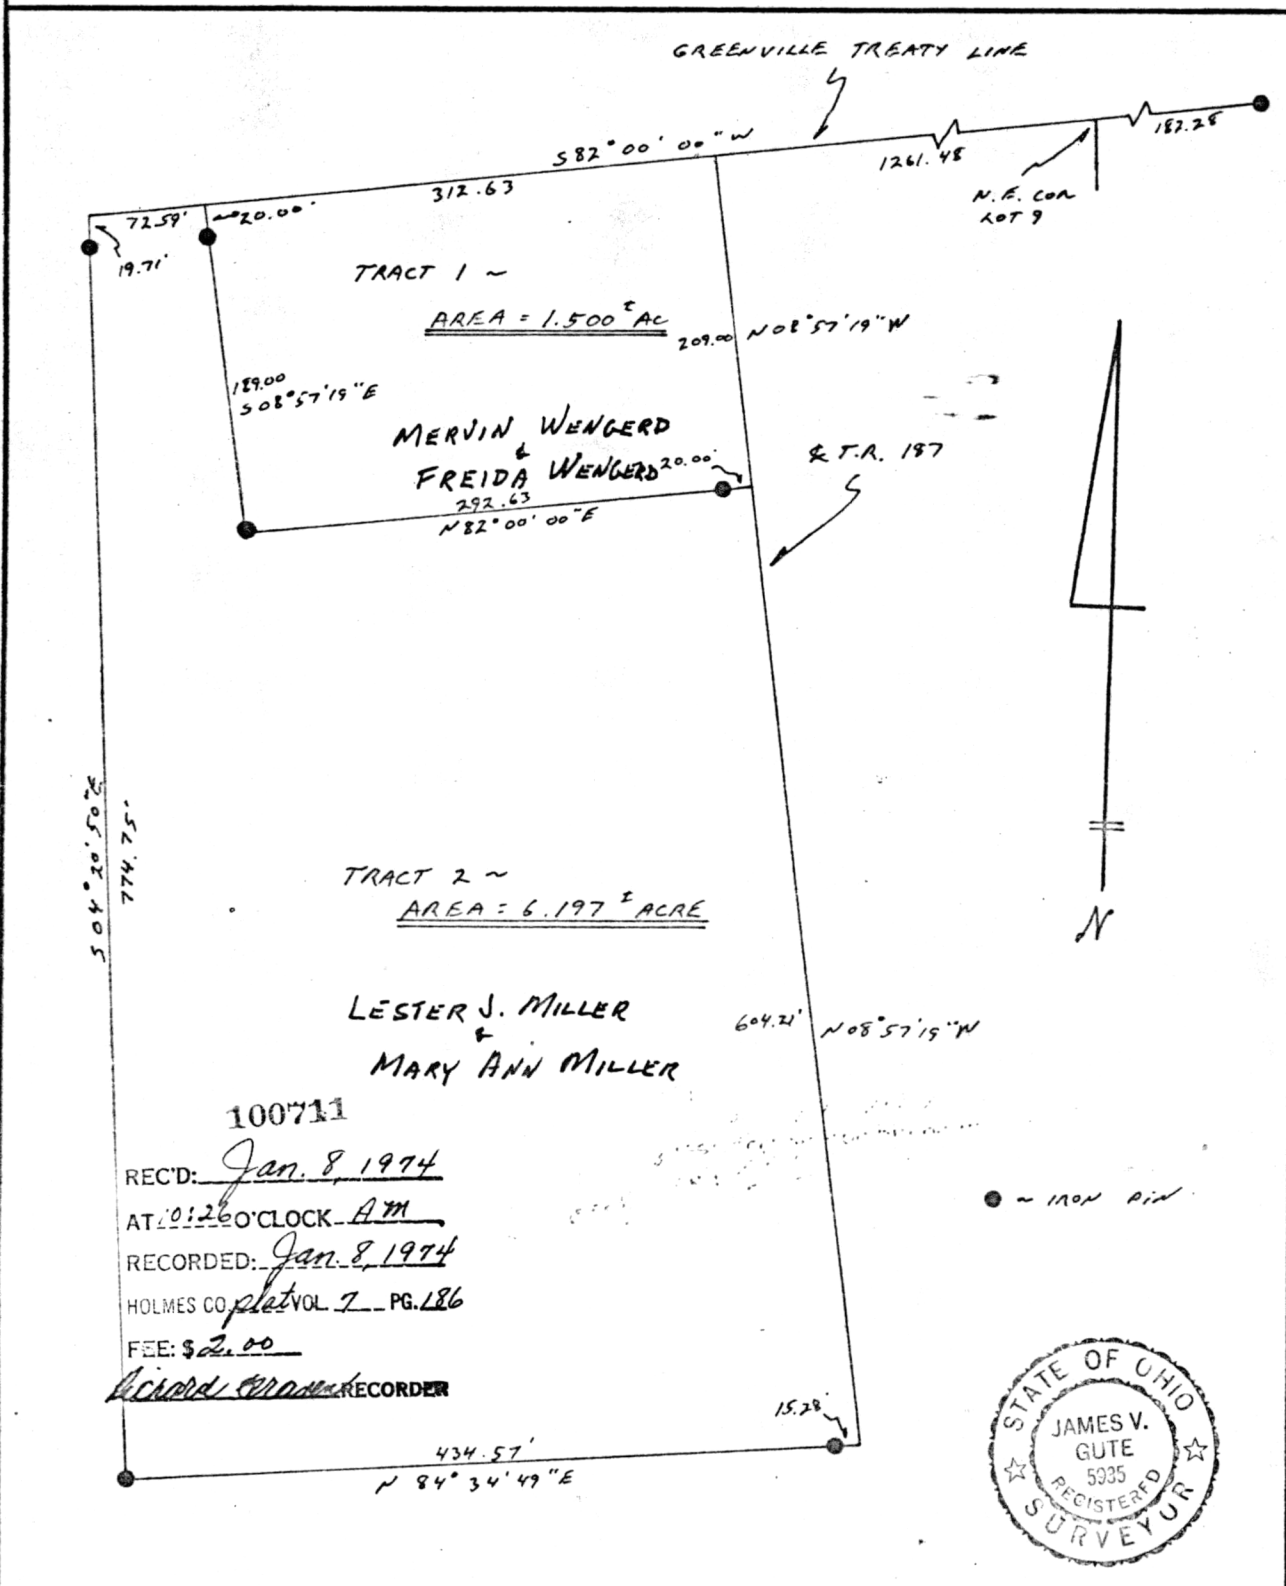 GREENVILLE TREATY LINE
S 82° 00' 00" W
1261.48
182.28
N.E. COR
LOT 9
312.63
72.59'
20.00'
19.71'
TRACT 1 ~
AREA = 1.500 ± AC
209.00 N 08° 57' 19" W
189.00
S 08° 57' 19" E
MERVIN WENGERD
&
FREIDA WENGERD
20.00'
292.63
N 82° 00' 00" E
℄ T.R. 187
S 04° 20' 50" E
774.75'
TRACT 2 ~
AREA = 6.197 ± ACRE
N
LESTER J. MILLER
&
MARY ANN MILLER
604.21' N 08° 57' 19" W
100711
REC'D: Jan. 8, 1974
AT 10:26 O'CLOCK AM
RECORDED: Jan. 8, 1974
HOLMES CO. plat VOL 7 PG. 186
FEE: $ 2.00
Richard RECORDER
● ~ IRON PIN
15.28'
434.57'
N 84° 34' 49" E
STATE OF OHIO
JAMES V.
GUTE
5935
REGISTERED
SURVEYOR